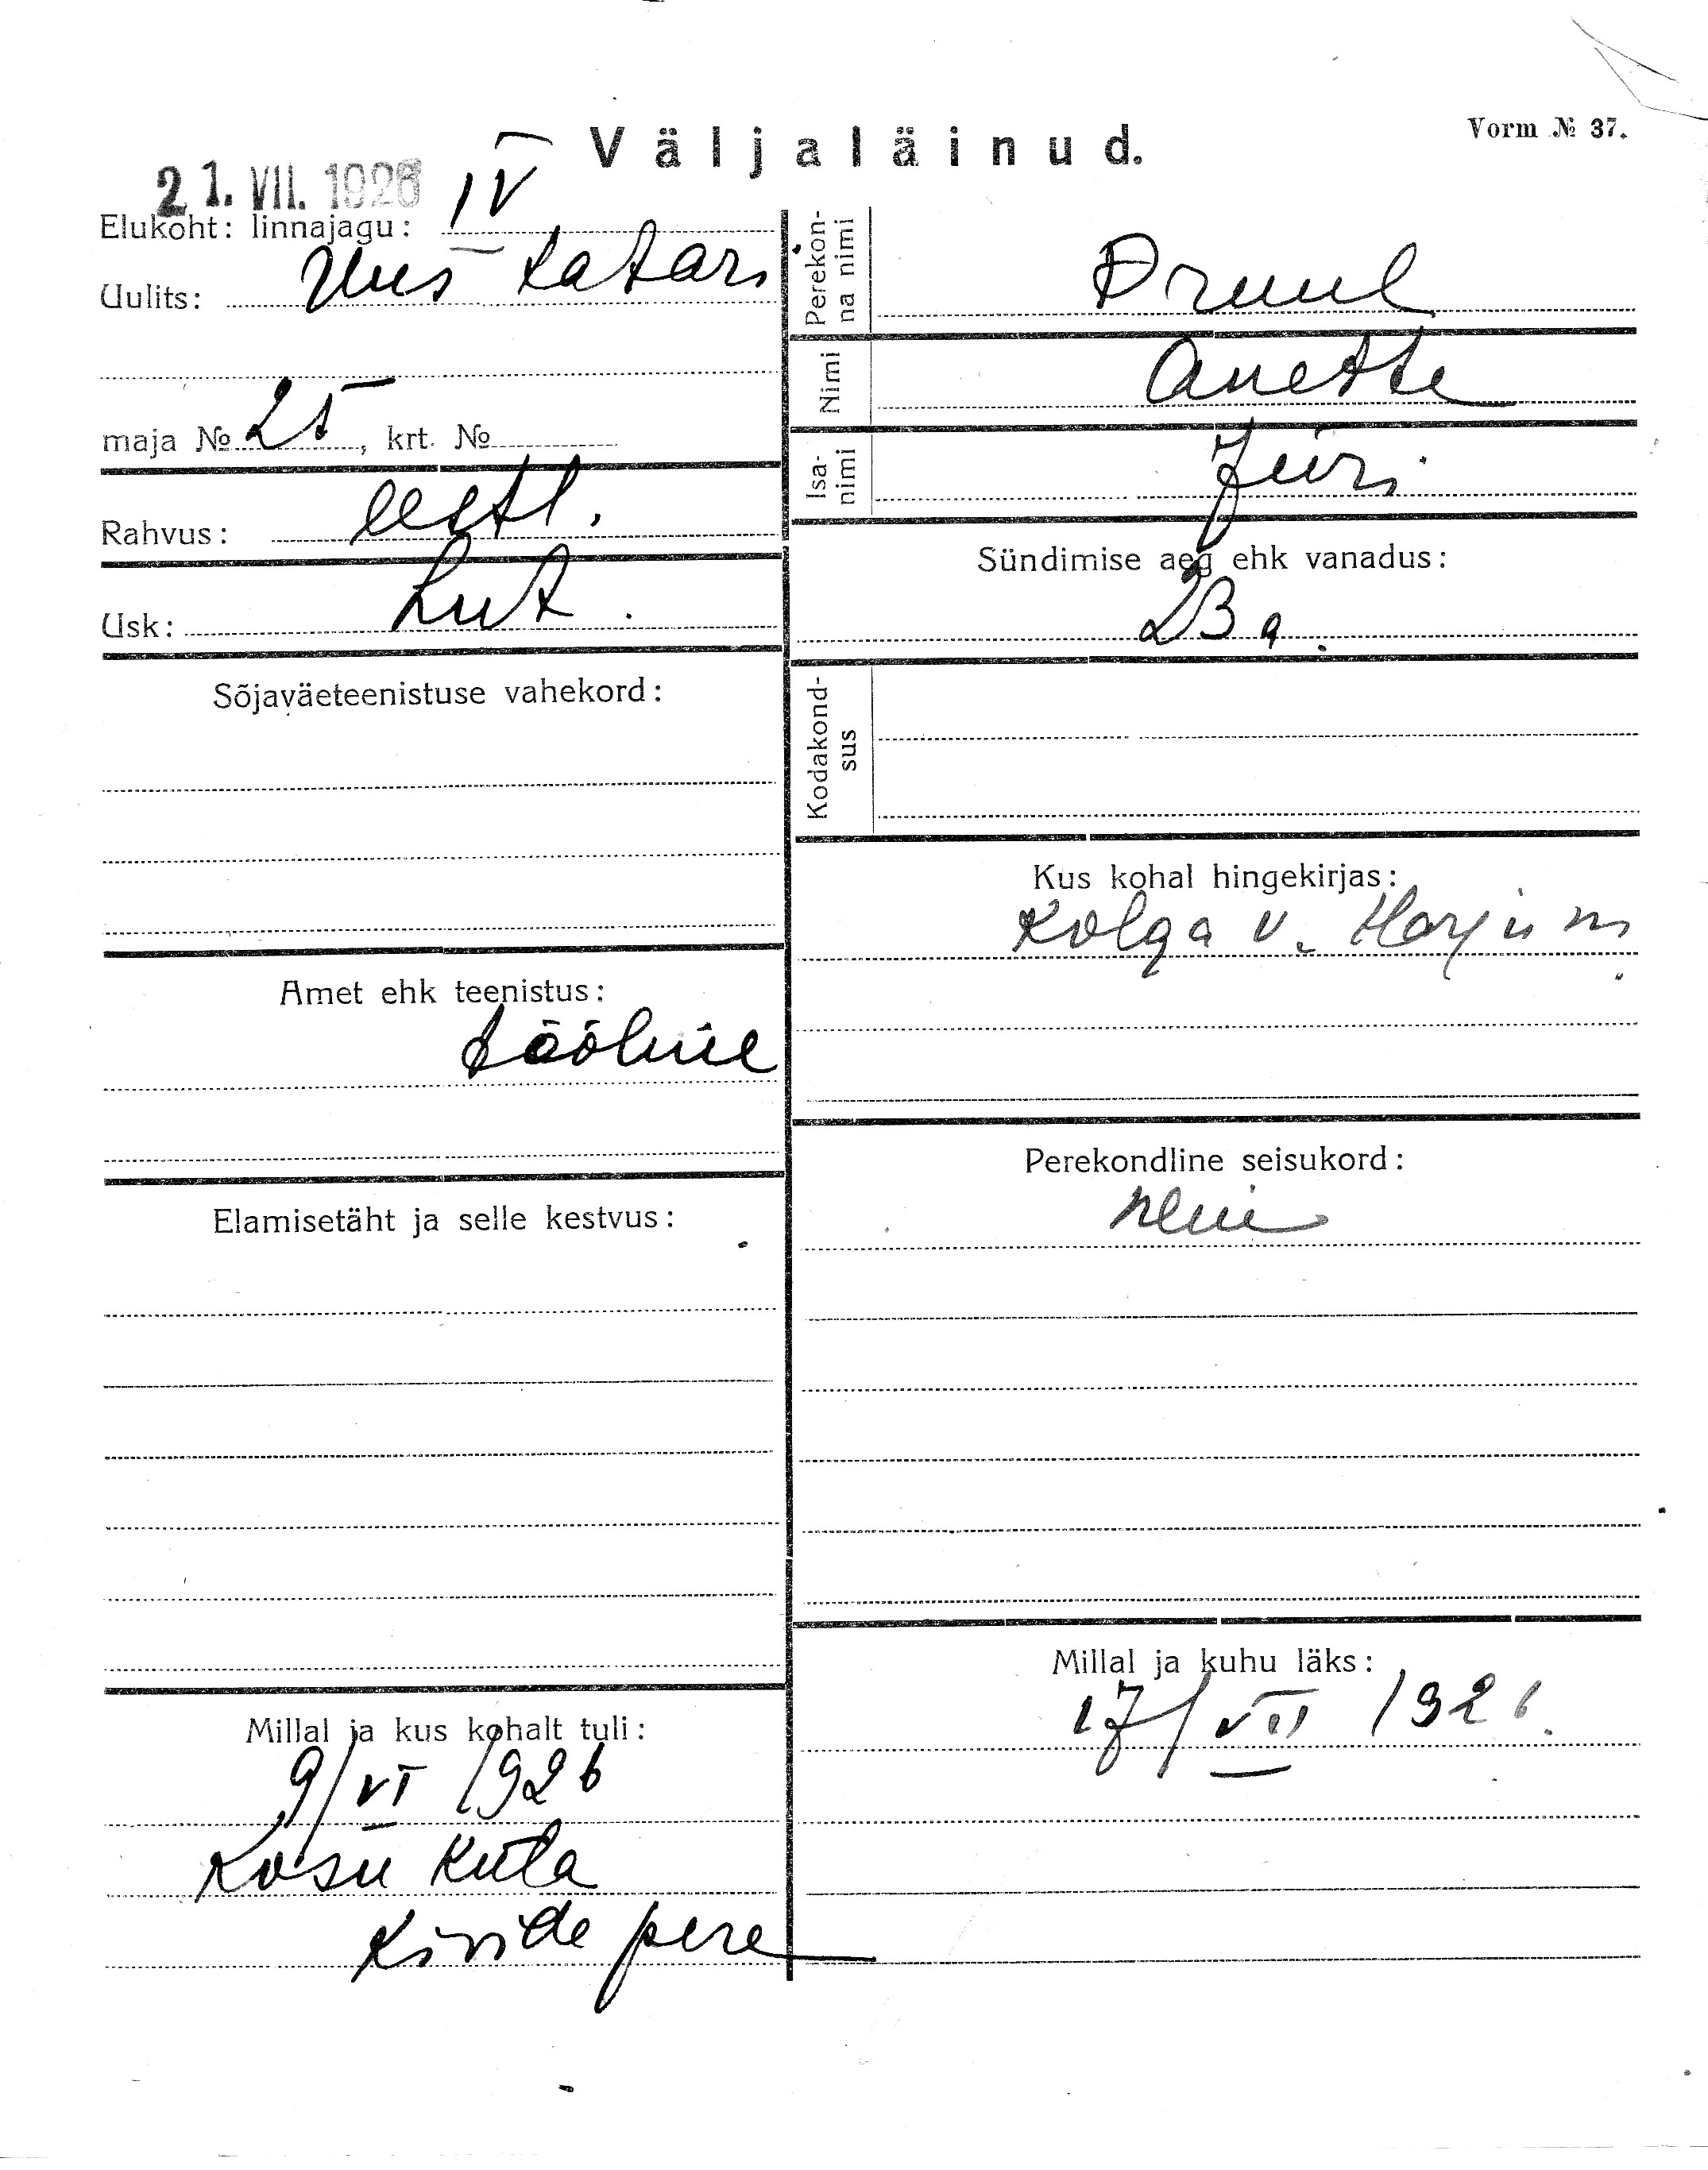 Vorm № 37.
Väljaläinud.
21. VII. 1926
Elukoht: linnajagu: IV
Uulits: Uus Tatari
maja № 25, krt. №
Rahvus: eestl.
Usk: Lut.
Sõjaväeteenistuse vahekord:
Amet ehk teenistus:
tööline
Elamisetäht ja selle kestvus:
Millal ja kus kohalt tuli:
9/VI 1926
Kosu küla
Kivide pere
Perekon-
na nimi
Pruul
Nimi
Anette
Isa-
nimi
Jüri
Sündimise aeg ehk vanadus:
23 a.
Kodakond-
sus
Kus kohal hingekirjas:
Kolga v. Harju m.
Perekondline seisukord:
Millal ja kuhu läks:
17/VII 1926.